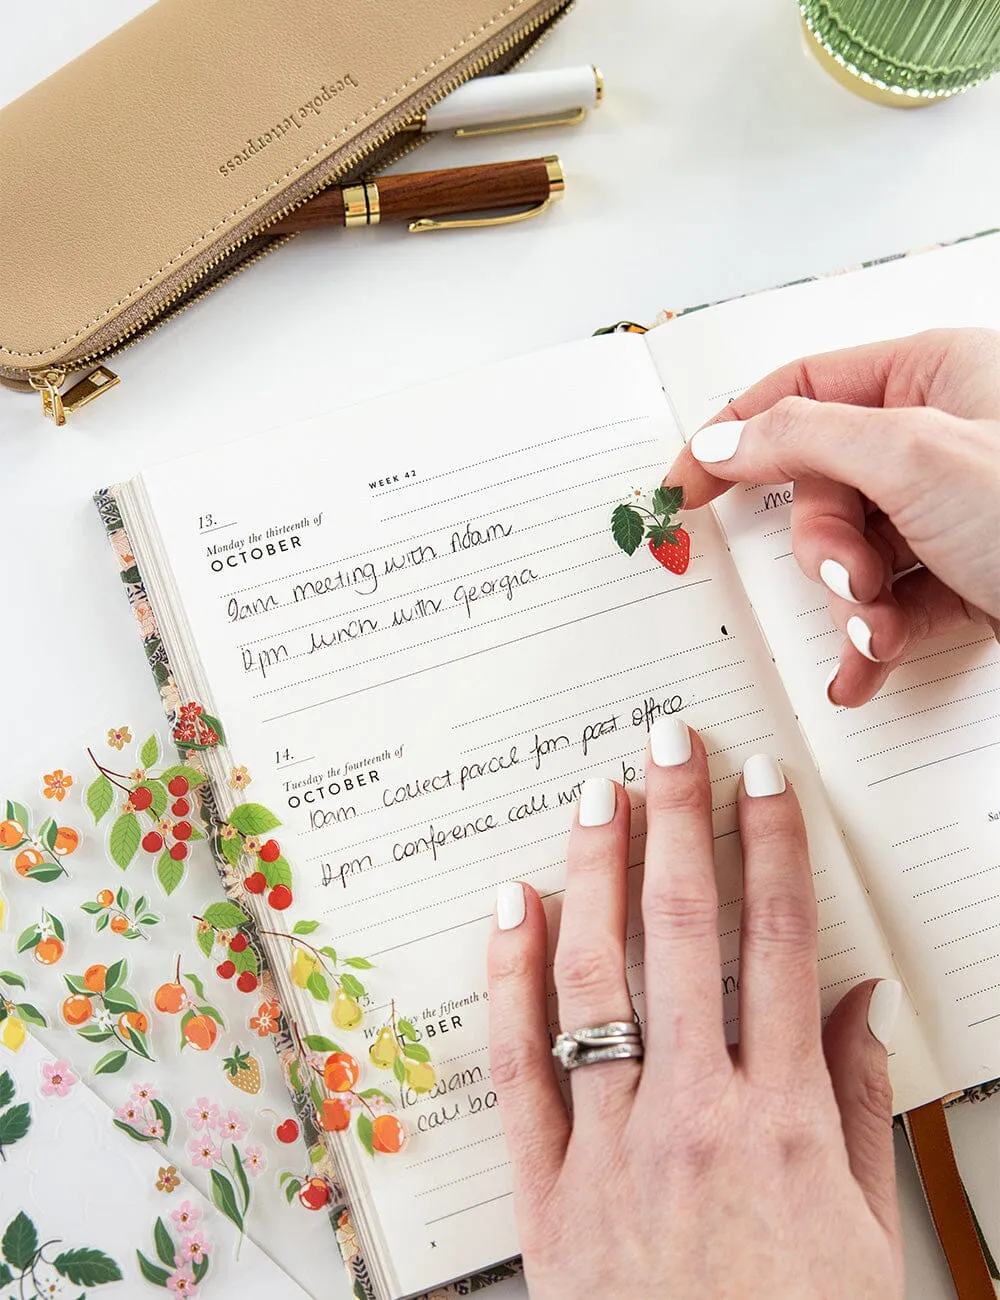 bespoke letterpress
WEEK 42
13.
Monday the thirteenth of
OCTOBER
9am meeting with Adam
12pm lunch with Georgia
14.
Tuesday the fourteenth of
OCTOBER
10am collect parcel from post office
12pm conference call with b
15.
the fifteenth
OCTOBER
call
me
Sa
x